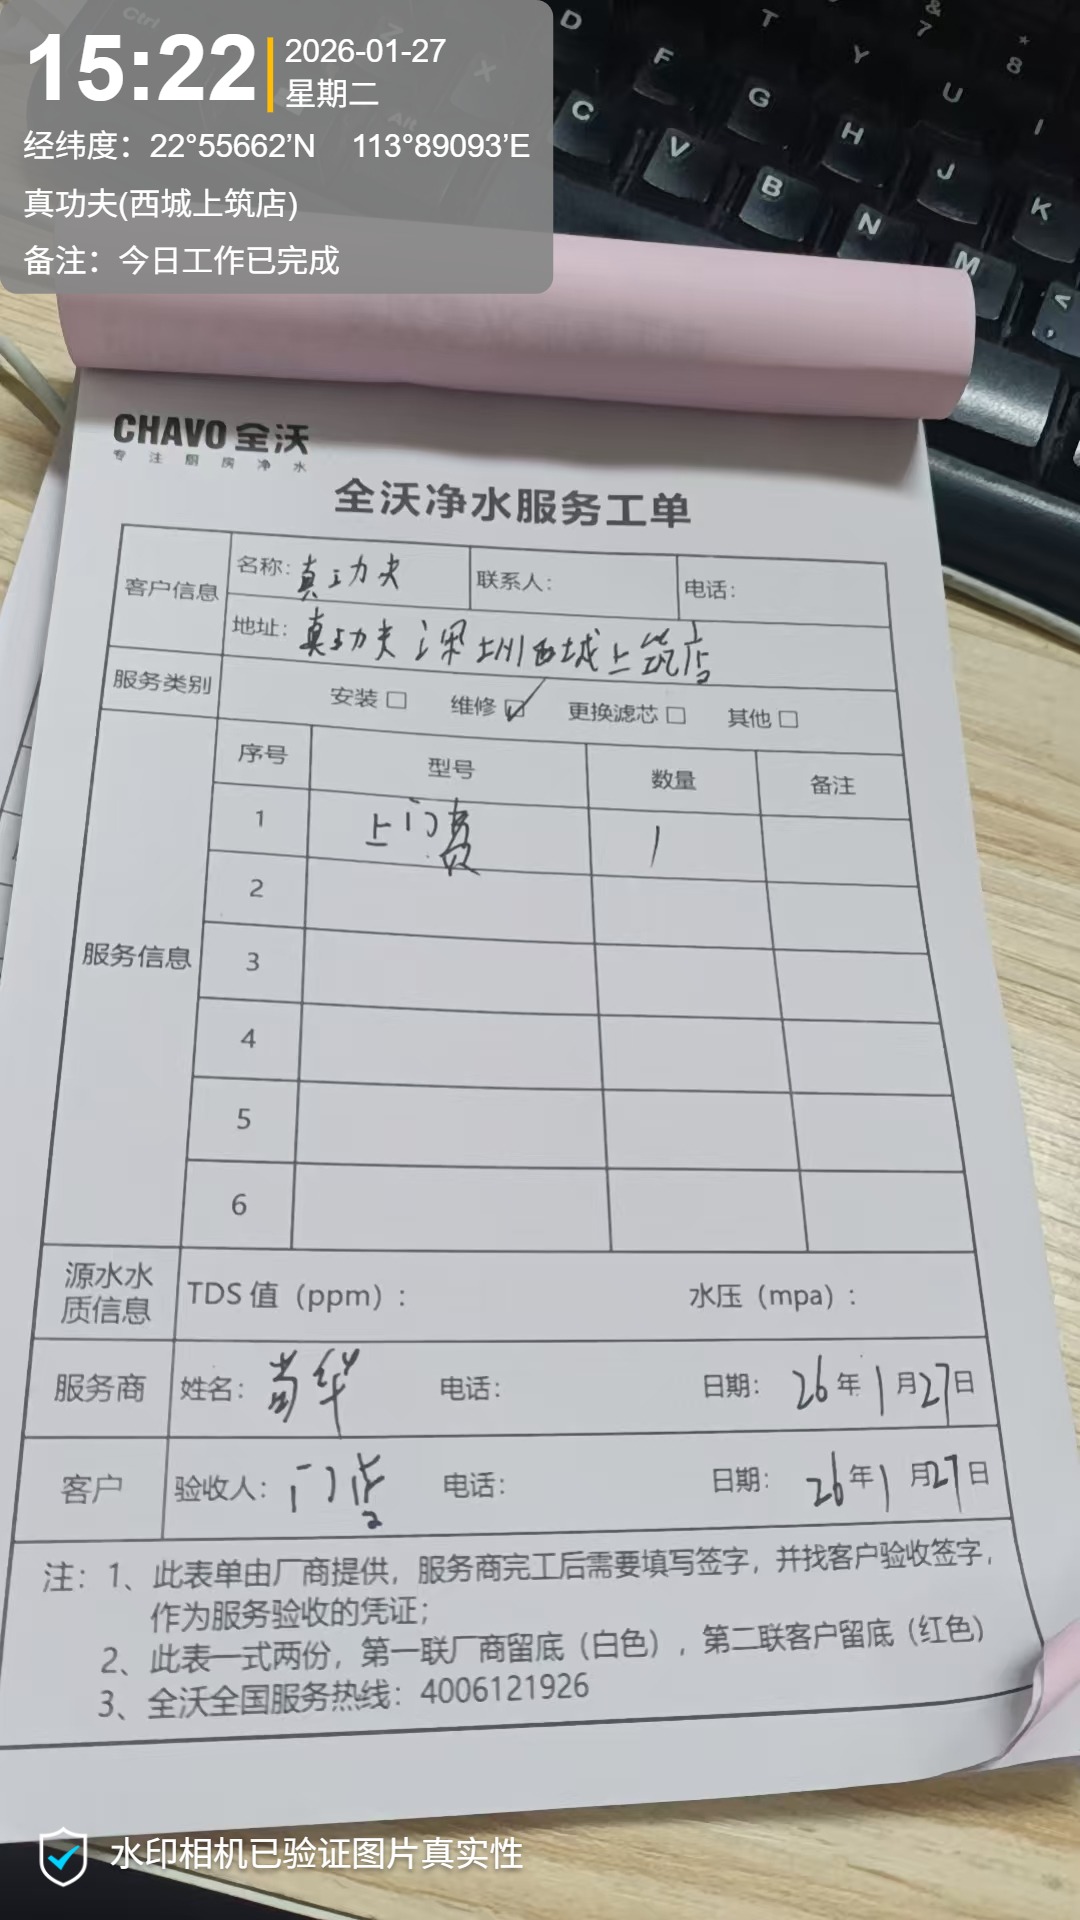 15:22
2026-01-27
星期二
经纬度：22°55662’N 113°89093’E
真功夫(西城上筑店)
备注：今日工作已完成
Ctrl
Z
X
Alt
D
F
G
H
J
K
T
Y
U
I
&
7
*
8
C
V
B
N
M
<
,
CHAVO 全沃
专注厨房净水
全沃净水服务工单
客户信息 名称：真功夫 联系人： 电话：
地址：真功夫深圳西城上筑店
服务类别 安装 □ 维修 ☑ 更换滤芯 □ 其他 □
服务信息
序号 型号 数量 备注
1 上门费 1
2
3
4
5
6
源水水质信息 TDS 值（ppm）： 水压（mpa）：
服务商 姓名： 电话： 日期：26年1月27日
客户 验收人：门店 电话： 日期：26年1月27日
注：1、此表单由厂商提供，服务商完工后需要填写签字，并找客户验收签字，
作为服务验收的凭证；
2、此表一式两份，第一联厂商留底（白色），第二联客户留底（红色）
3、全沃全国服务热线：4006121926
水印相机已验证图片真实性